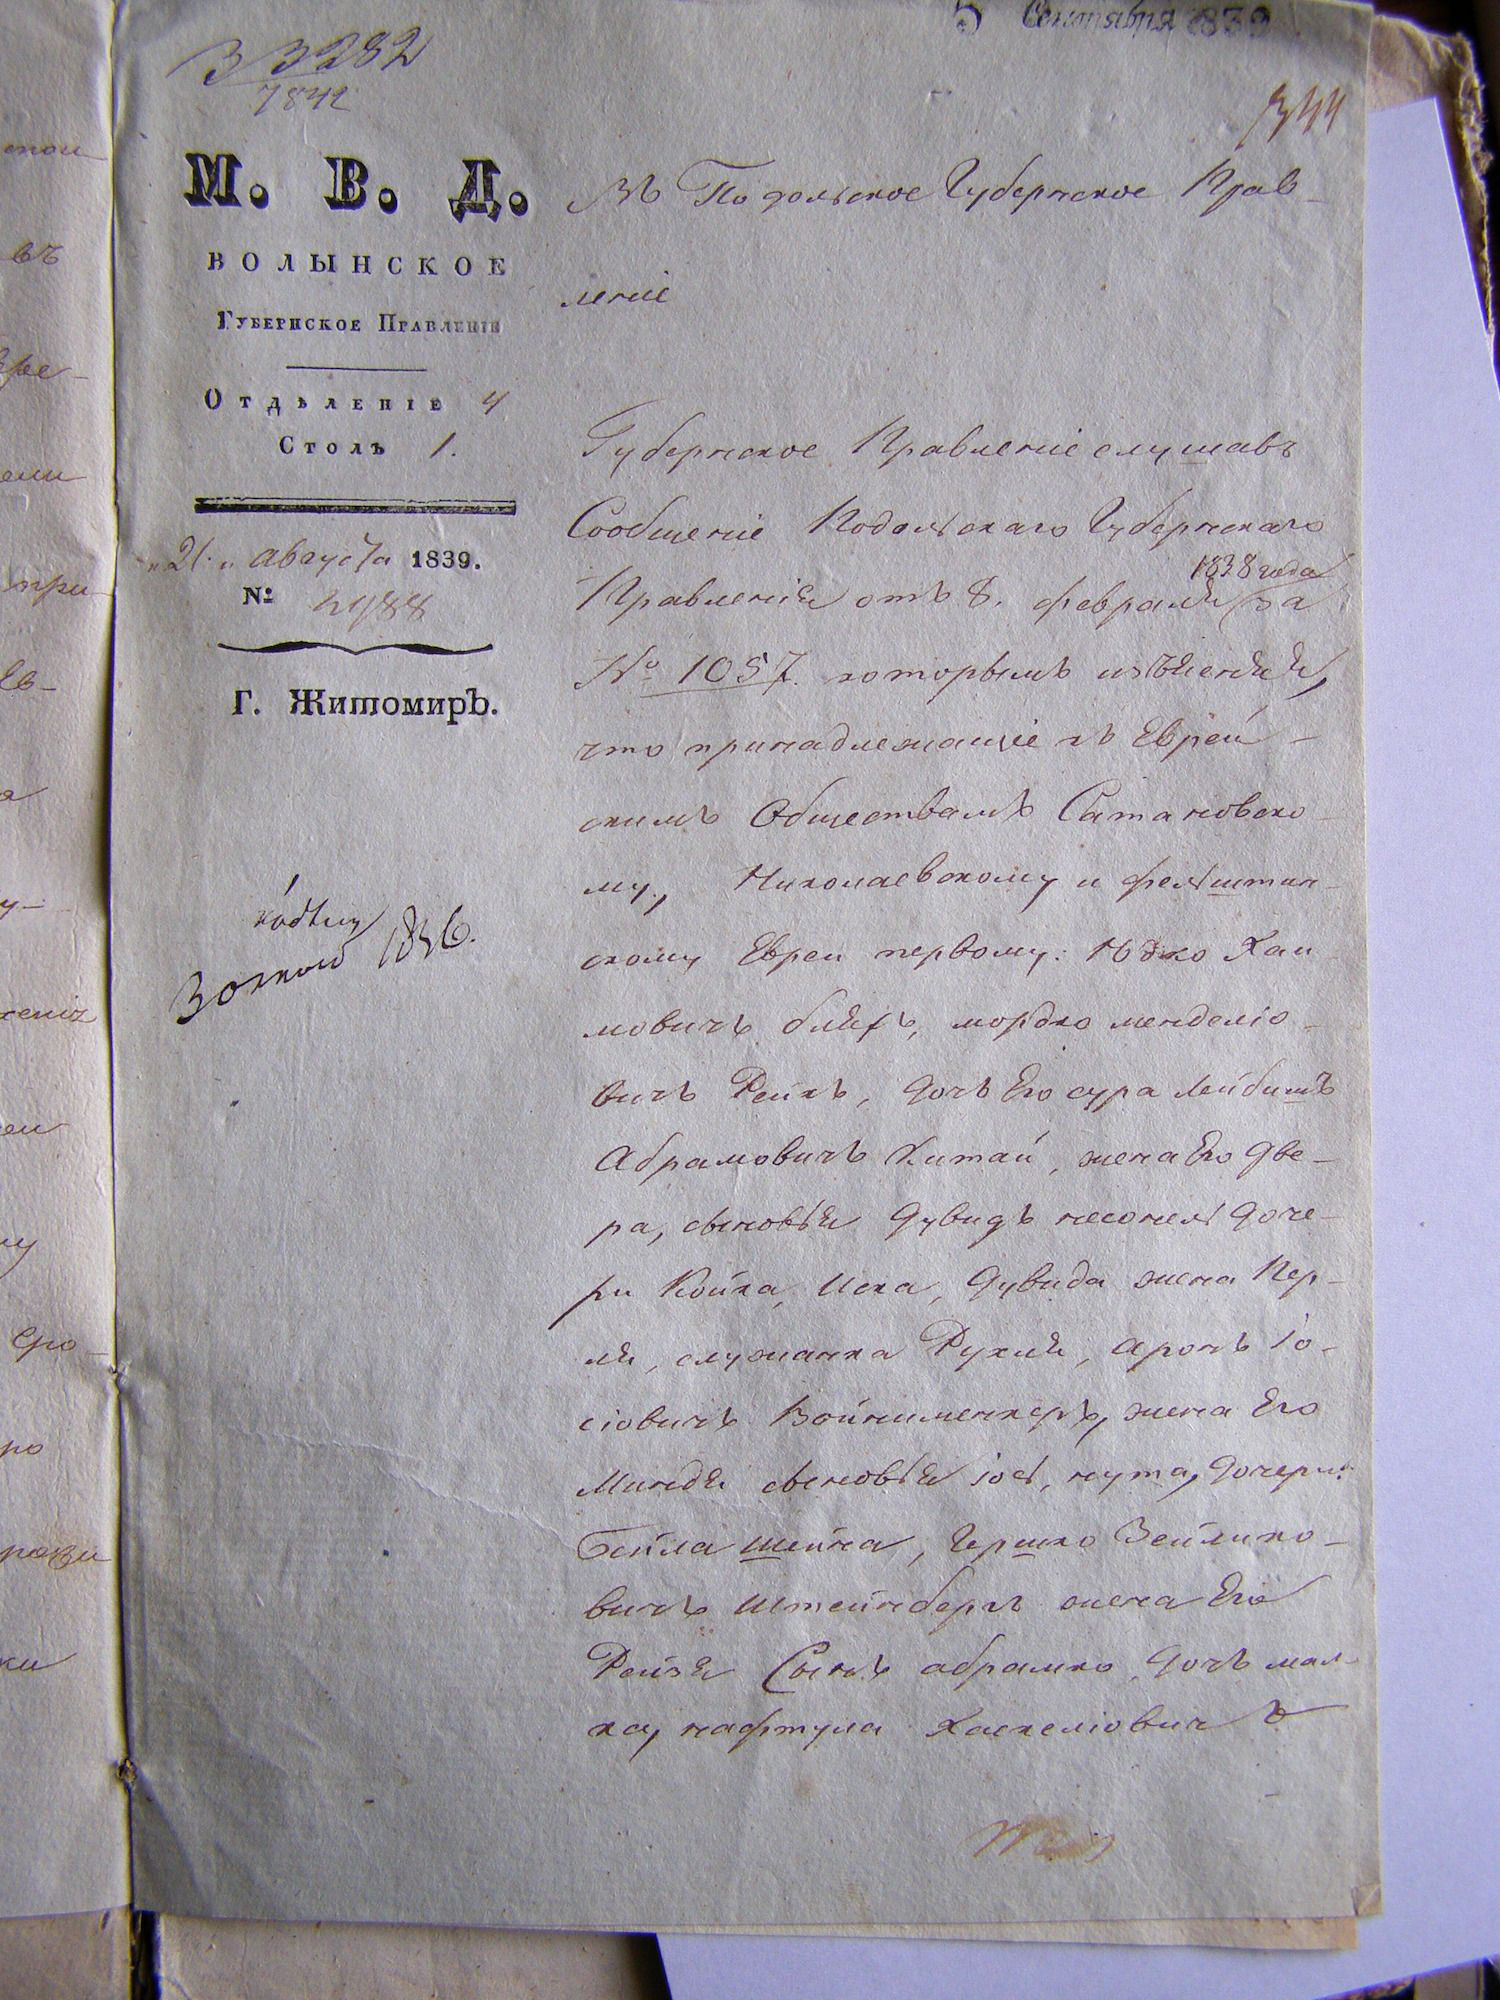 5 Сентября 1839
33282
7842
344
М. В. Д.
ВОЛЫНСКОЕ
ГУБЕРНСКОЕ ПРАВЛЕНІЕ
ОТДѢЛЕНІЕ 4
СТОЛЪ 1.
„21„ августа 1839.
№
Г. Житомиръ.
1836.
Въ Подольское Губернское Прав-
леніе
Губернское Правленіе слушавъ
Сообщеніе Подольскаго Губернскаго
1838 года
Правленія отъ 8. февраля за
№ 1057. которымъ изъясняя,
что принадлежащіе къ Еврей-
скимъ Обществамъ Сатановско-
му, Николаевскому и фельштин-
скому Евреи первому: Юдко Хаи-
мовичъ блях, мордко менделіо-
вичъ Рейхъ, дочь Его сура Лейбишъ
Абрамовичъ Китай, жена Его Две-
ра, сыновья Дувидъ несонель доче-
ри Койка, Иска, Дувида жена Пер-
ля, служанка Рухля, аронъ Іо-
сіовичъ Войнименкеръ, жена Его
Миндя сыновья іось, нута, дочери:
Бейла Шейна, Гершко Зейлико-
вичъ Штейнбергъ жена Его
Рейзя Сынъ абрамко, дочь мал-
ка, нафтула Хаскеліовичъ